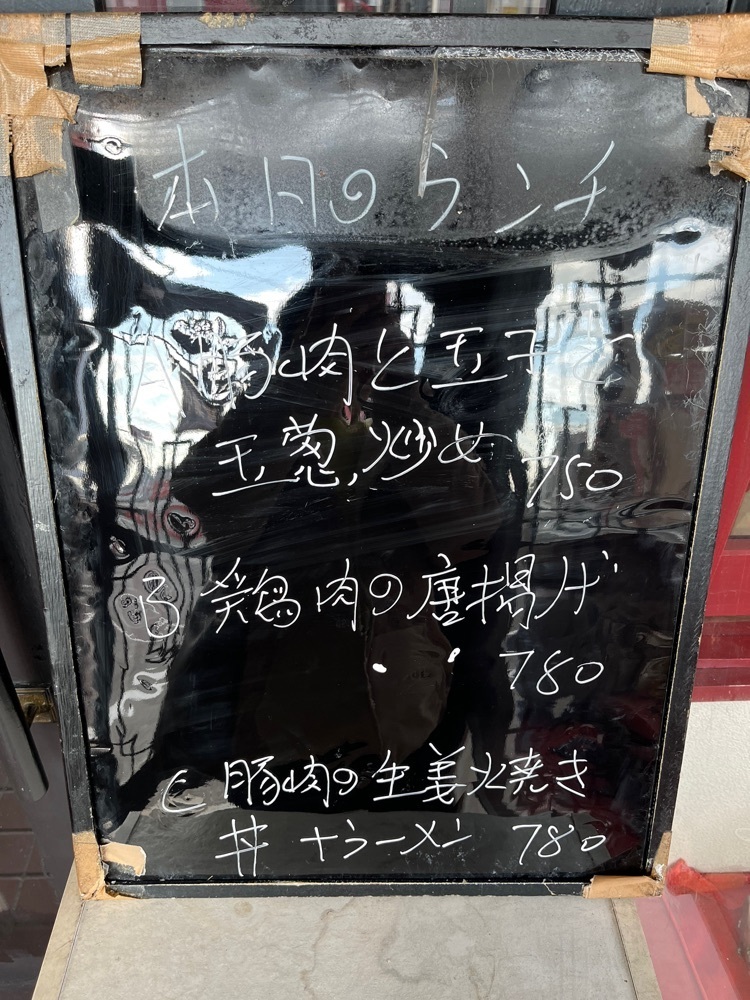 本日のランチ
豚肉と玉子と
玉葱炒め 750
B 鶏肉の唐揚げ
780
C 豚肉の生姜焼き
丼 +ラーメン 780